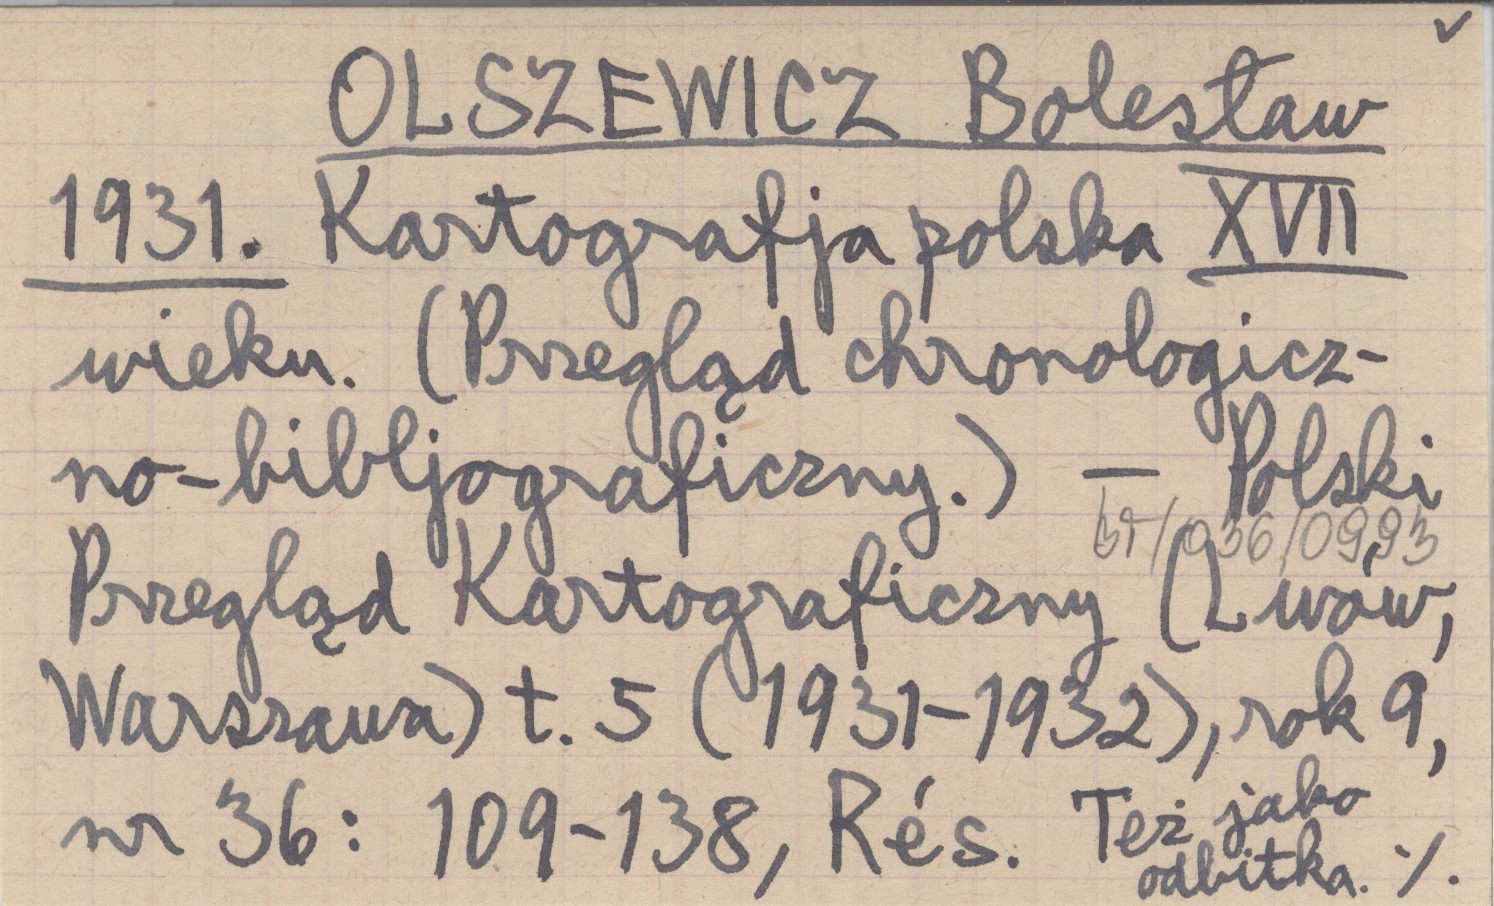 OLSZEWICZ Bolesław
1931. Kartografja polska XVII
wieku. (Przegląd chronologicz-
no-bibljograficzny.) — Polski
Przegląd Kartograficzny (Lwów,
Warszawa) t. 5 (1931-1932), rok 9,
nr 36: 109-138, Rés. Też jako
odbitka. ·/.
/036/0993